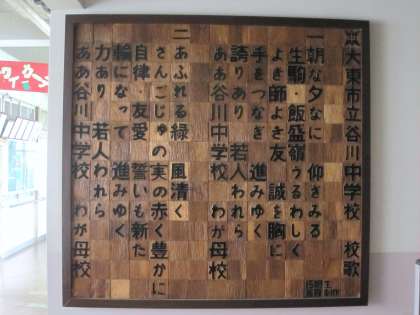 大東市立谷川中学校 校歌
一朝な夕なに 仰ぎみる
生駒・飯盛嶺うるわしく
よき師よき友 誠を胸に
手をつなぎ 進みゆく
誇りあり 若人われら
ああ谷川中学校 わが母校
二あふれる緑 風清く
さんごじゅの実の赤く豊かに
自律・友愛 誓いも新た
輪になって 進みゆく
力あり 若人われら
ああ谷川中学校 わが母校